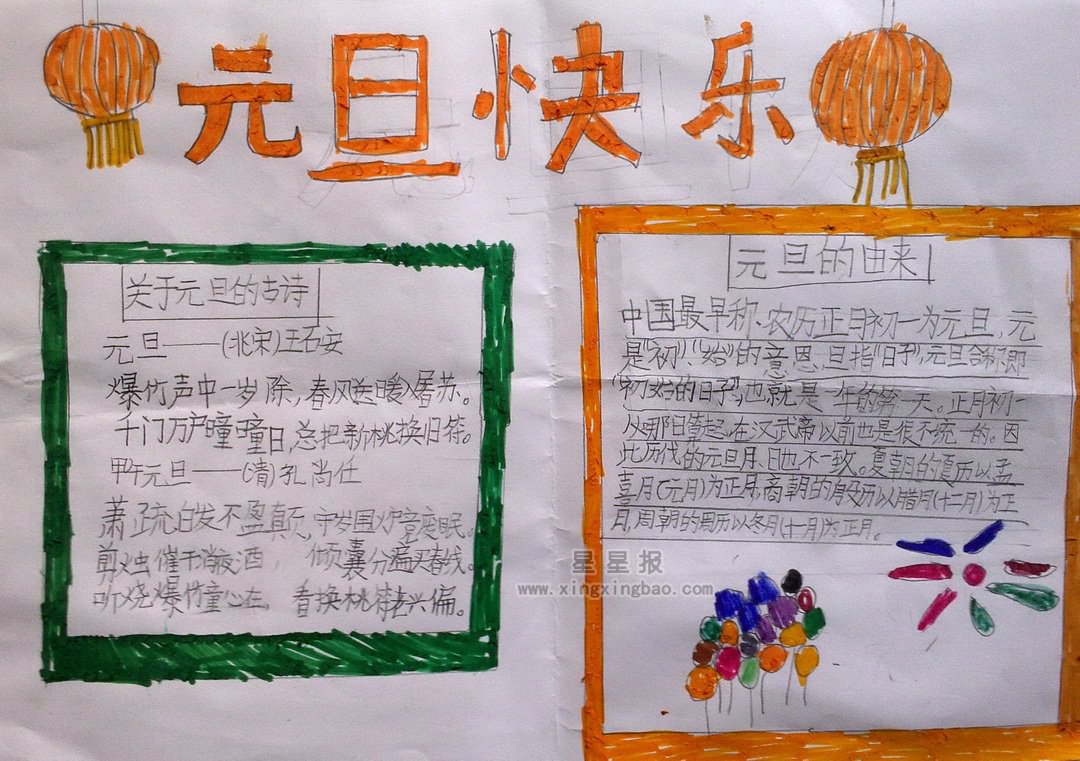 元旦快乐
关于元旦的古诗
元旦——(北宋)王石安
爆竹声中一岁除,春风送暖屠苏。
千门万户曈曈日,总把新桃换旧符。
甲午元旦——(清)孔尚任
萧疏白发不盈颠,守岁围炉竟废眠。
剪烛催干消夜酒, 倾囊分遍买春线。
听烧爆竹童心在, 看换桃符老兴偏。
元旦的由来
中国最早称、农历正月初一为元旦,元
是“初”“始”的意思,旦指“日子”,元旦合称即
“初始的日子”,也就是一年的第一天。正月初一
从哪日算起,在汉武帝以前也是很不统一的。因
此历代的元旦月、日也不一致。夏朝的夏历以孟
喜月(元月)为正月,商朝的殷历以腊月(十二月)为正
月,周朝的周历以冬月(十一月)为正月。
星星报
www.xingxingbao.com